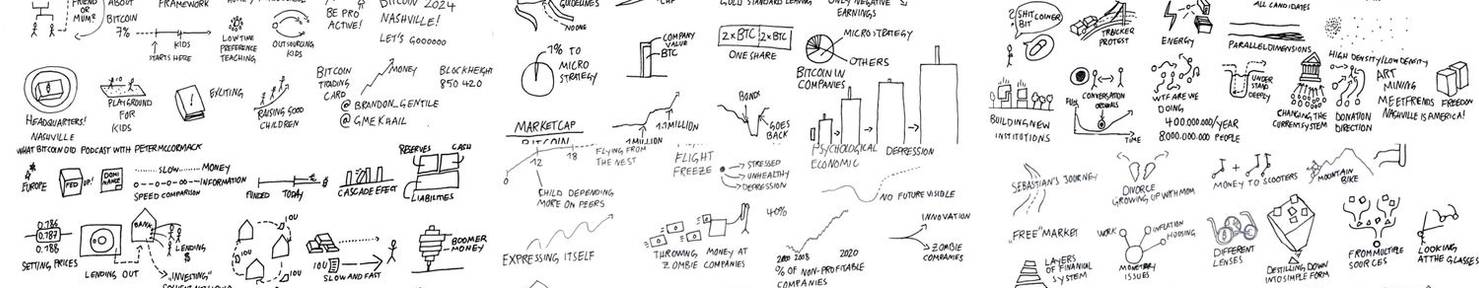 FRIEND
OR
MUM?
ABOUT
BITCOIN
7%
FRAMEWORK
KIDS
STARTS HERE
LOW TIME
PREFERENCE
TEACHING
OUTSOURCING
KIDS
BE PRO
ACTIVE!
BITCOIN 2024
NASHVILLE!
LET'S GOOOOOO
HEADQUARTERS!
NASHVILLE
PLAYGROUND
FOR
KIDS
EXCITING
RAISING GOOD
CHILDREN
BITCOIN
TRADING
CARD
MONEY
BLOCKHEIGHT
850 420
@ BRANDON_GENTILE
@ GMEKHAIL
WHAT BITCOIN DID PODCAST WITH PETER MCCORMACK
EUROPE
FED
UP!
DOMI
NANCE
SLOW
MONEY
INFORMATION
SPEED COMPARISON
FUNDED
TODAY
CASCADE EFFECT
RESERVES
CASH
LIABILITIES
0.786
0.787
0.788
SETTING PRICES
LENDING OUT
BANK
LENDING
$
"INVESTING"
IOU
IOU
IOU
IOU
SLOW AND FAST
BOOMER
MONEY
GUIDELINES
YOUNG
GOLD STANDARD LEAVING
ONLY NEGATIVE
EARNINGS
1% TO
MICRO
STRATEGY
COMPANY
VALUE
BTC
2xBTC
2xBTC
ONE SHARE
MICROSTRATEGY
OTHERS
BITCOIN IN
COMPANIES
MARKETCAP
BITCOIN
1.1MILLION
BONDS
GOES
BACK
PSYCHOLOGICAL
ECONOMIC
DEPRESSION
12
18
FLYING FROM
THE NEST
CHILD DEPENDING
MORE ON PEERS
FLIGHT
FREEZE
STRESSED
UNHEALTHY
DEPRESSION
NO FUTURE VISIBLE
EXPRESSING ITSELF
THROWING MONEY AT
ZOMBIE COMPANIES
40%
2008
2020
% OF NON-PROFITABLE
COMPANIES
INNOVATION
ZOMBIE
COMPANIES
SHITCOINER
BIT
TRUCKER
PROTEST
ENERGY
ALL CANDIDATES
PARALLEL DIMENSIONS
HIGH DENSITY/LOW DENSITY
BUILDING NEW
INSTITUTIONS
CONVERSATION
TIME
WTF ARE WE
DOING
400.000.000/YEAR
8.000.000.000 PEOPLE
UNDER
STAND
DEEPLY
CHANGING THE
CURRENT SYSTEM
DONATION
DIRECTION
ART
MINING
MEET FRIENDS
NASHVILLE IS AMERICA!
FREEDOM
SEBASTIAN'S JOURNEY
DIVORCE
GROWING UP WITH MOM
MONEY TO SCOOTERS
MOUNTAIN
BIKE
"FREE" MARKET
LAYERS
OF FINANCIAL
SYSTEM
WORK
INFLATION
HOUSING
MONETARY
ISSUES
DIFFERENT
LENSES
DISTILLING DOWN
INTO SIMPLE FORM
FROM MULTIPLE
SOURCES
LOOKING
AT THE GLASSES